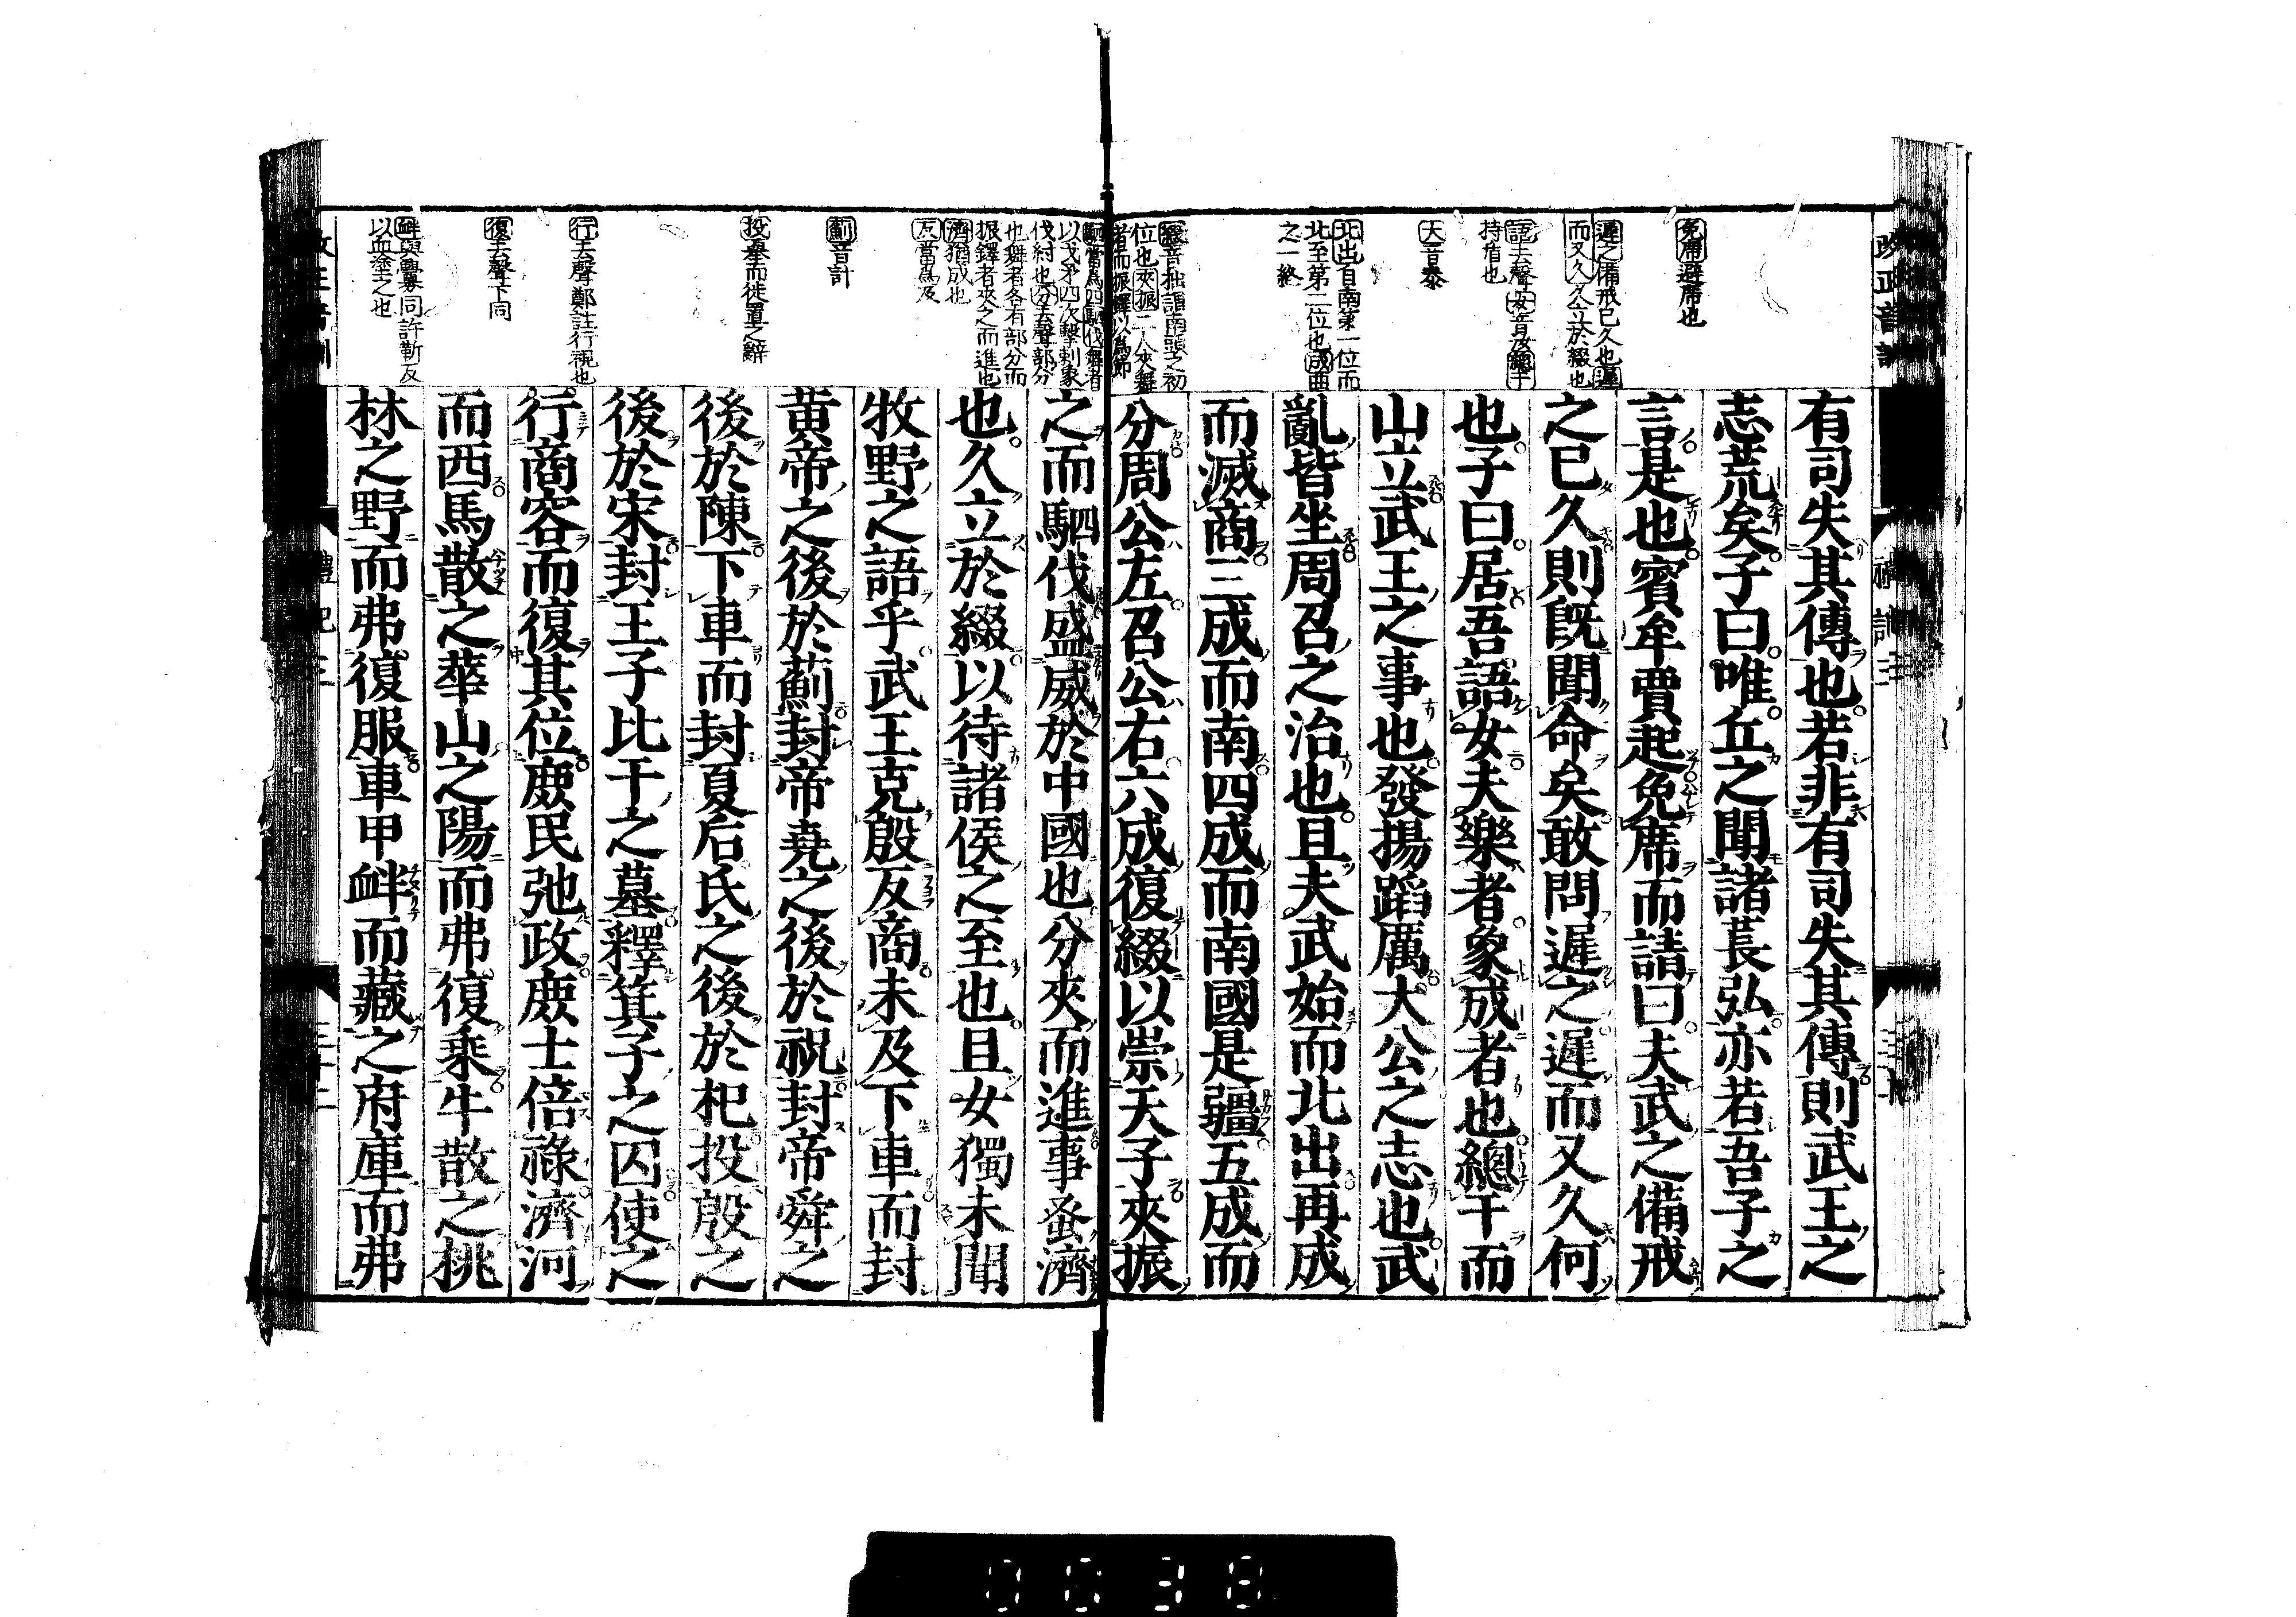 免席避席也
遲之備戒已久也遲
而又久久立於綴也
語去聲女音汝總干
持盾也
大音泰
北出自南第一位而
北至第二位也成曲
之一終
綴音拙謂南頭之初
位也夾振二人夾舞
者而振鐸以爲節
有司失其傳也若非有司失其傳則武王之
志荒矣子曰唯丘之聞諸萇弘亦若吾子之
言是也賓牟賈起免席而請曰夫武之備戒
之已久則旣聞命矣敢問遲之遲而又久何
也子曰居吾語女夫樂者象成者也總干而
山立武王之事也發揚蹈厲大公之志也武
亂皆坐周召之治也且夫武始而北出再成
而滅商三成而南四成而南國是疆五成而
分周公左召公右六成復綴以崇天子夾振
駟當爲四駟伐舞者
以戈矛四次擊刺象
伐紂也分去聲部分
也舞者各有部分而
振鐸者夾之而進也
濟猶成也
反當爲及
薊音計
投擧而徙置之辭
行去聲鄭註行視也
復去聲下同
衅與釁同許靳反
以血塗之也
之而駟伐盛威於中國也分夾而進事蚤濟
也久立於綴以待諸侯之至也且女獨未聞
牧野之語乎武王克殷反商未及下車而封
黃帝之後於薊封帝堯之後於祝封帝舜之
後於陳下車而封夏后氏之後於杞投殷之
後於宋封王子比干之墓釋箕子之囚使之
行商容而復其位庶民弛政庶士倍祿濟河
而西馬散之華山之陽而弗復乘牛散之桃
林之野而弗復服車甲衅而藏之府庫而弗
禮記三
三十二